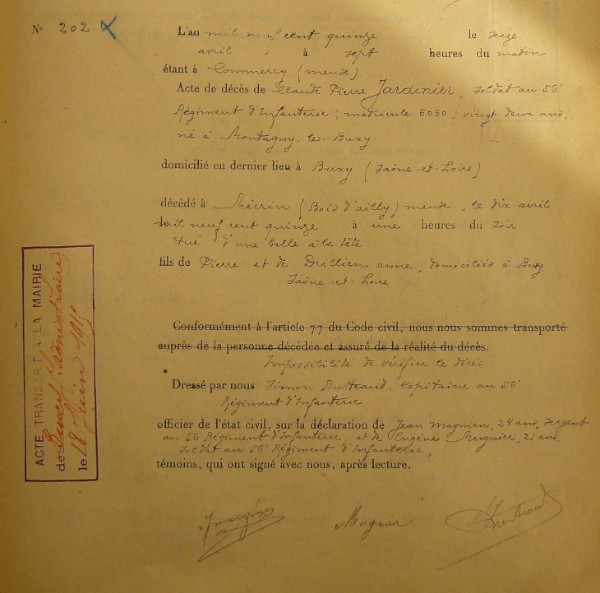 N° 202
L'an mil neuf cent quinze le seize
avril à sept heures du matin
étant à Commercy (Meuse)
Acte de décès de Claude Pierre Jardinier, soldat au 56e
Régiment d'Infanterie; matricule 6060; vingt deux ans,
né à Montagny-les-Buxy
domicilié en dernier lieu à Buxy (Saône-et-Loire)
décédé à Mécrin (Bois d'ailly) meuse, le dix avril
mil neuf cent quinze à une heures du soir
tué d'une balle à la tête
fils de Pierre et de Drillien anne, domiciliés à Buxy
Saône-et-Loire
Conformément à l'article 77 du Code civil, nous nous sommes transporté
auprès de la personne décédée et assuré de la réalité du décès.
Impossibilité de vérifier le décès
Dressé par nous Simon Capitaine au 56e
Régiment d'Infanterie
officier de l'état civil, sur la déclaration de Jean Magnien, 28 ans, sergent
au 56 Régiment d'Infanterie, et de Eugène 21 ans
soldat au 56e Régiment d'Infanterie,
témoins, qui ont signé avec nous, après lecture.
ACTE TRANSRIT A LA MAIRIE
de Saône et Loire
le 18 Juin 1919